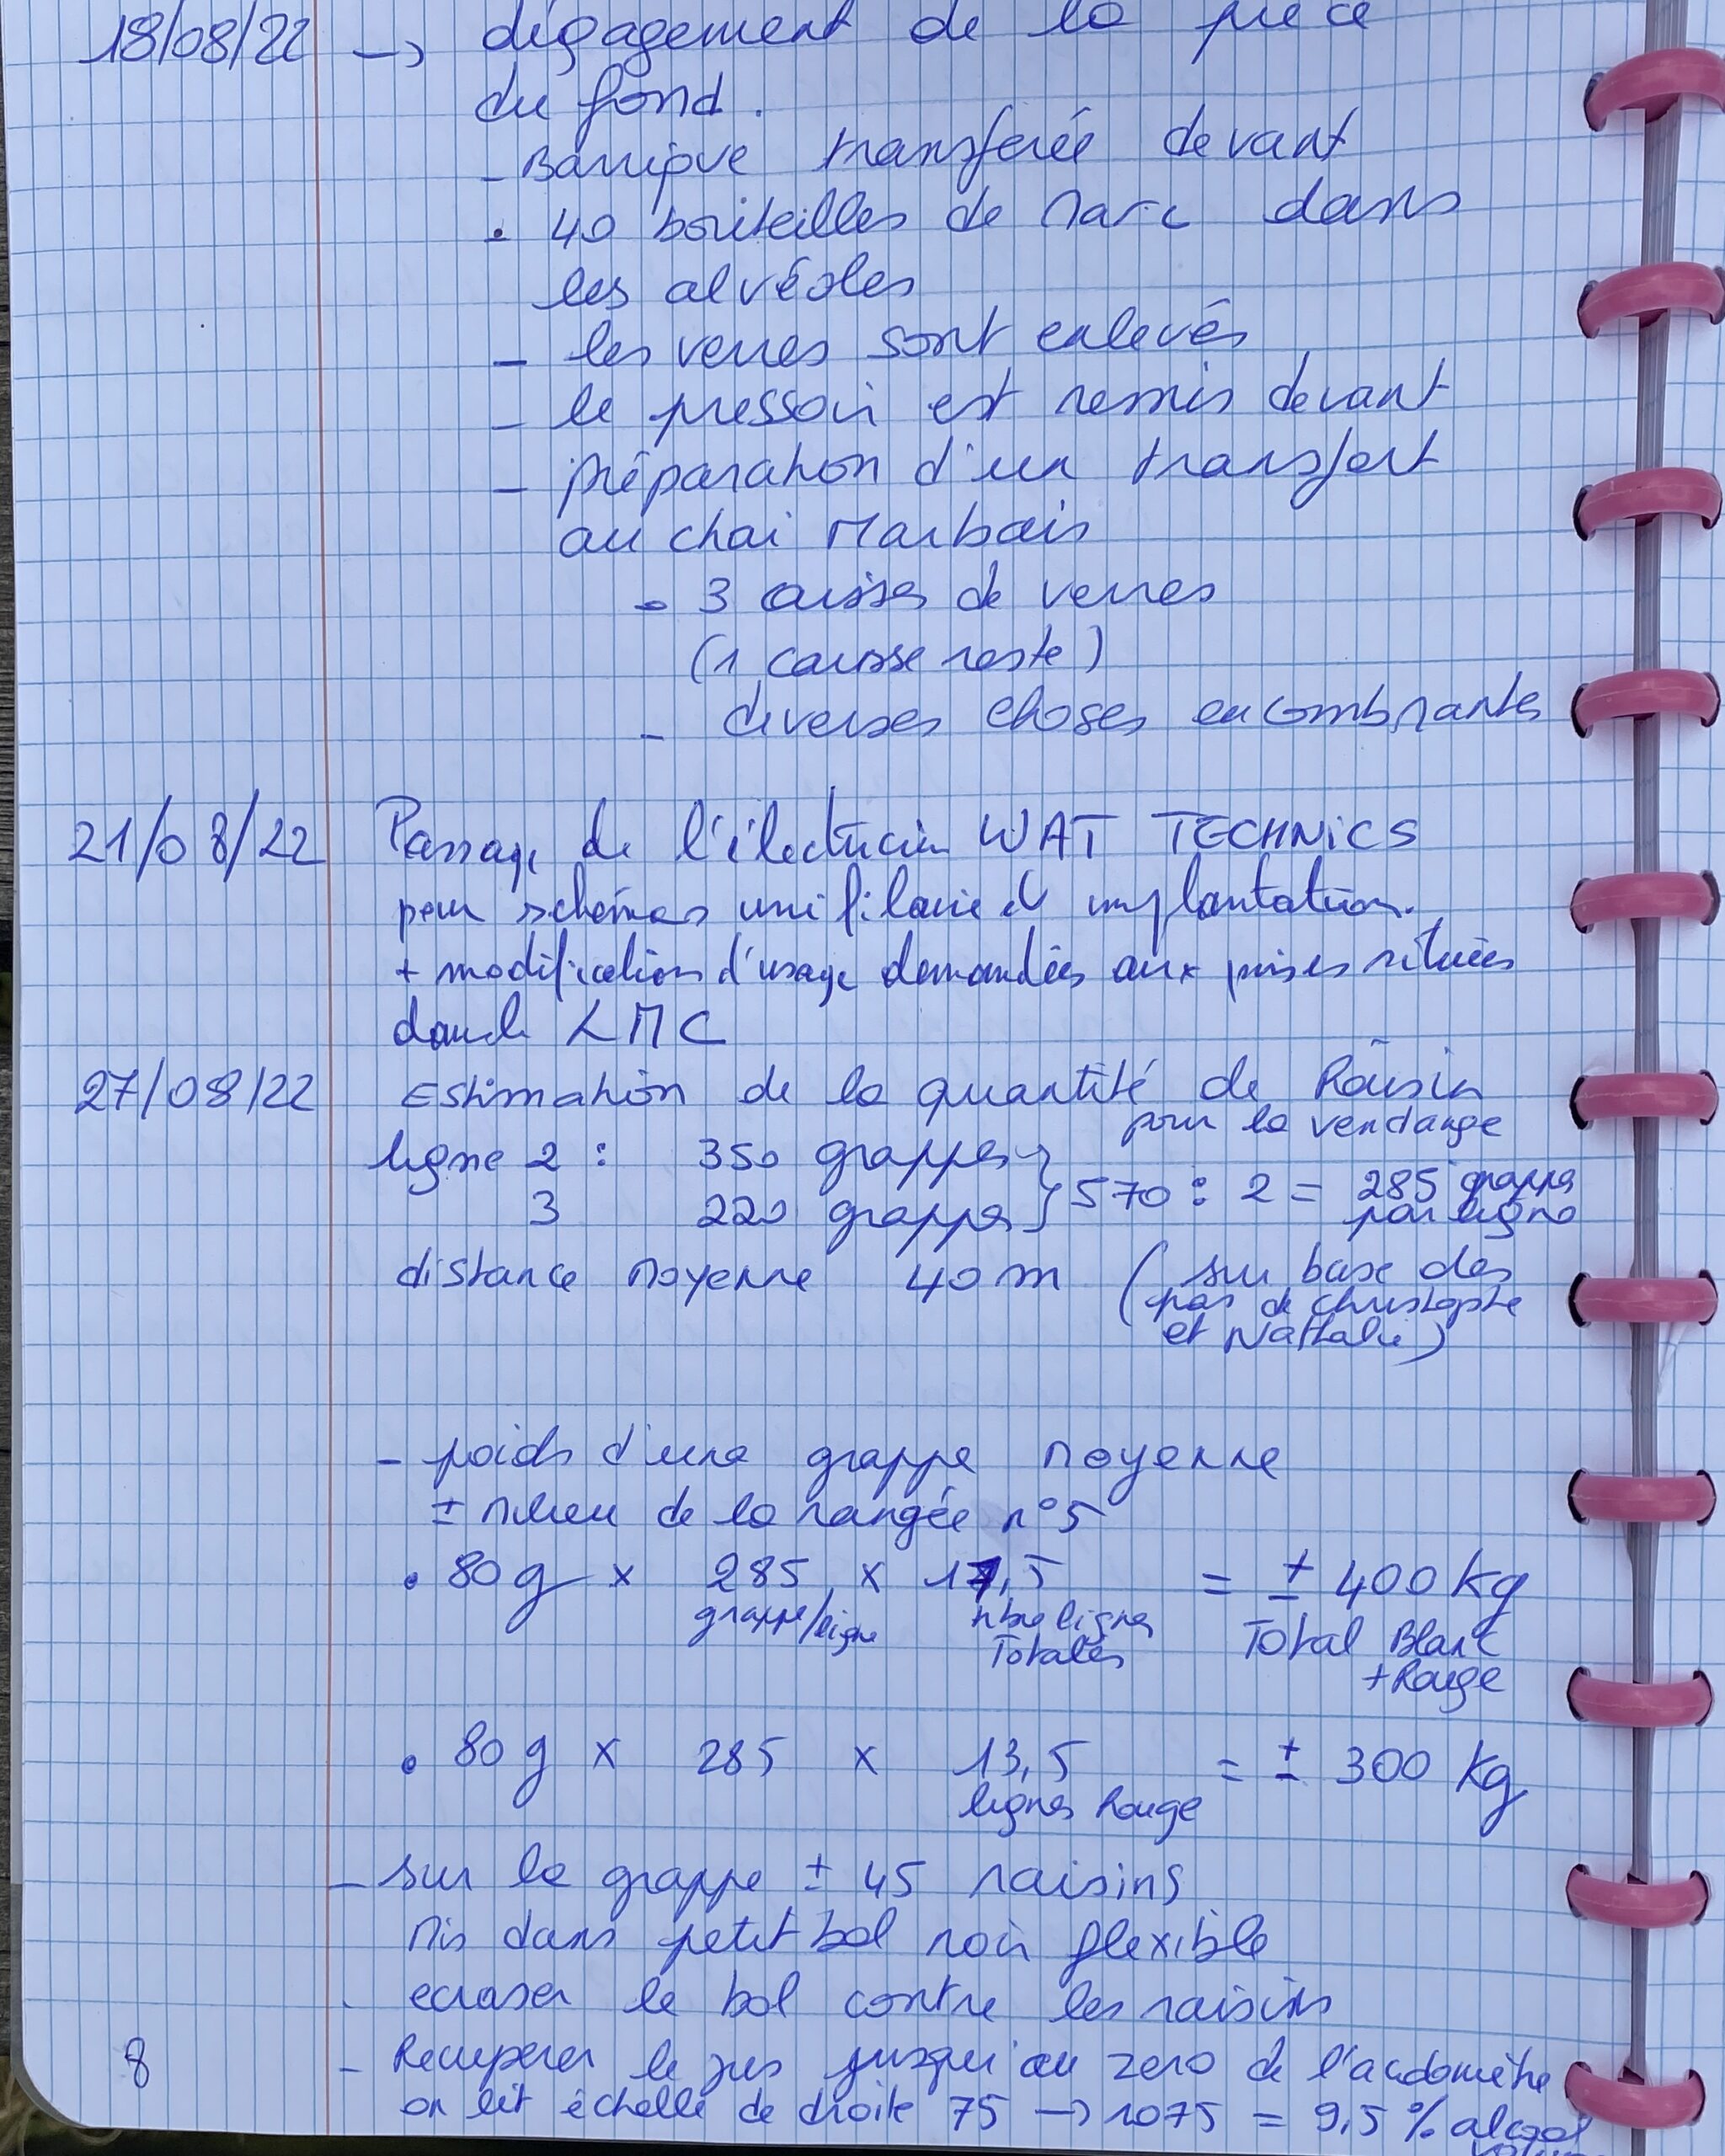 18/08/22 → dégagement de la pièce
du fond.
- Barrique transférée devant
- 40 bouteilles de Marc dans
les alvéoles
- les verres sont enlevés
- le pressoir est remis devant
- préparation d'un transfert
au chai Marbais
- 3 caisses de verres
(1 caisse reste)
- diverses choses encombrantes
21/08/22 Passage de l'électricien WAT TECHNICS
pour schémas unifilaire et implantation.
+ modification d'usage demandées aux prises situées
dans le LMC
27/08/22 Estimation de la quantité de Raisin
pour la vendange
ligne 2 : 350 grappes
3 220 grappes } 570 : 2 = 285 grappes
par ligne
distance moyenne 40 m (sur base des
pas de Christophe
et Nathalie)
- poids d'une grappe moyenne
± milieu de la rangée n°5
• 80 g x 285 x 17,5 = ± 400 kg
grappe/ligne nbre lignes Total Blanc
Totales + Rouge
• 80 g x 285 x 13,5 = ± 300 kg
lignes Rouge
- sur la grappe ± 45 raisins
Mis dans petit bol noir flexible
écraser le bol contre les raisins
- Récupérer le jus jusqu'au zero de l'acidomètre
on lit échelle de droite 75 → 1075 = 9,5 % alcool
8